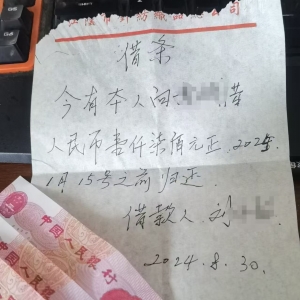 市针纺织品公司
借条
今有本人向 借
人民币壹仟柒佰元正,2025年
1月15号之前归还.
借款人 刘
2024.8.30.
中国人民银行
中国人民银行